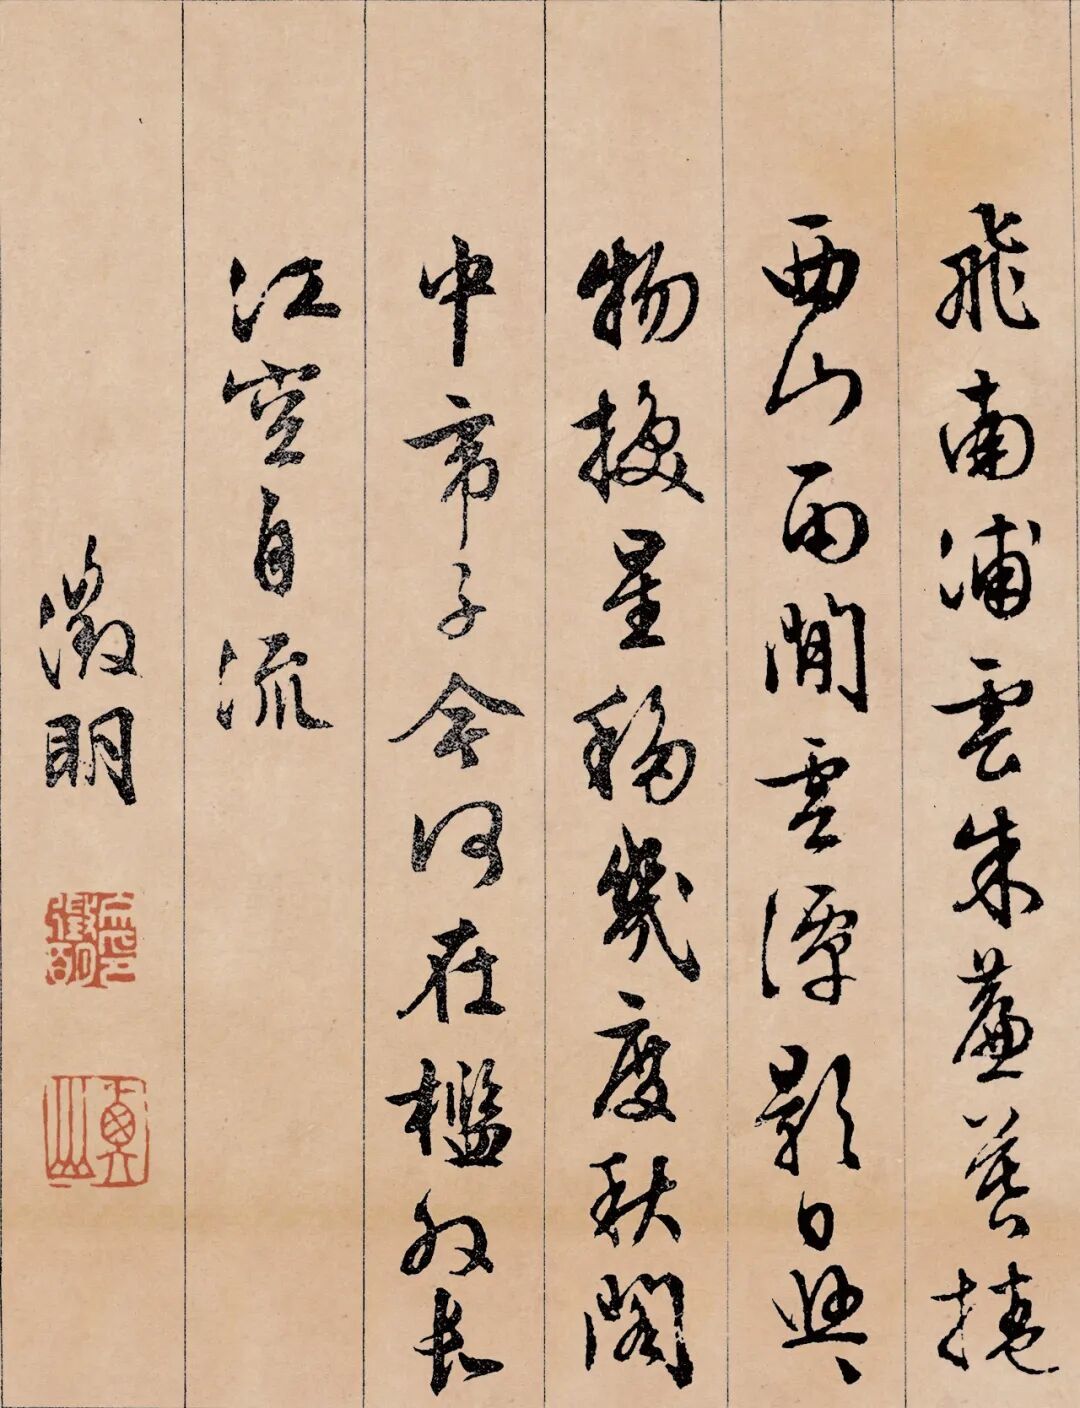 飛南浦雲朱簾暮捲
西山雨閒雲潭影日悠々
物換星移幾度秋閣
中帝子今何在檻外長
江空自流
徵明